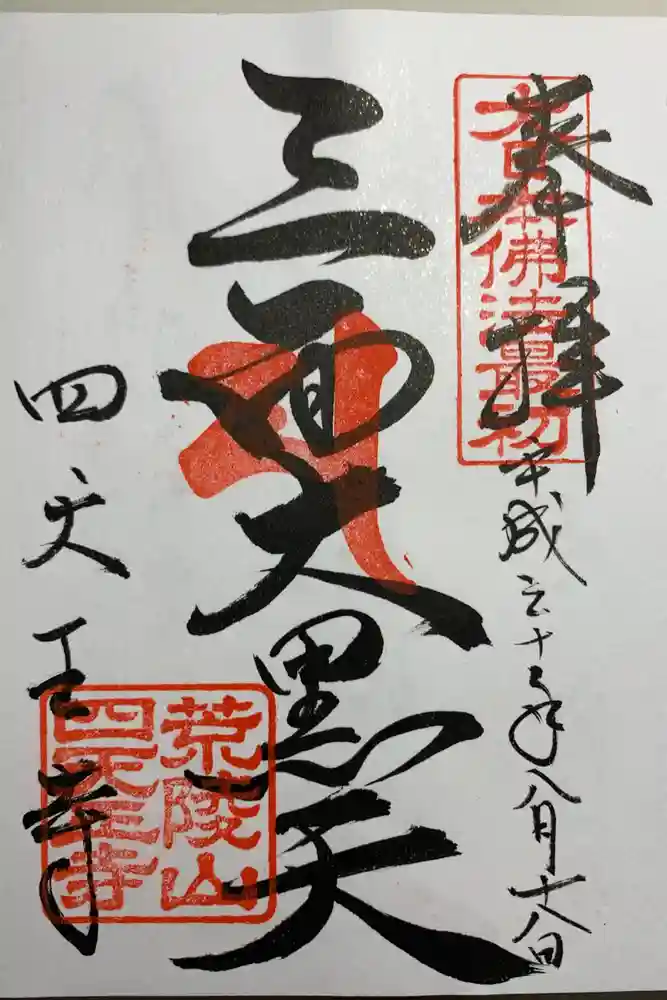 奉拝
大日本佛法最初
平成三十年八月十八日
三面大黒天
四天王寺
荒陵山
四天王寺